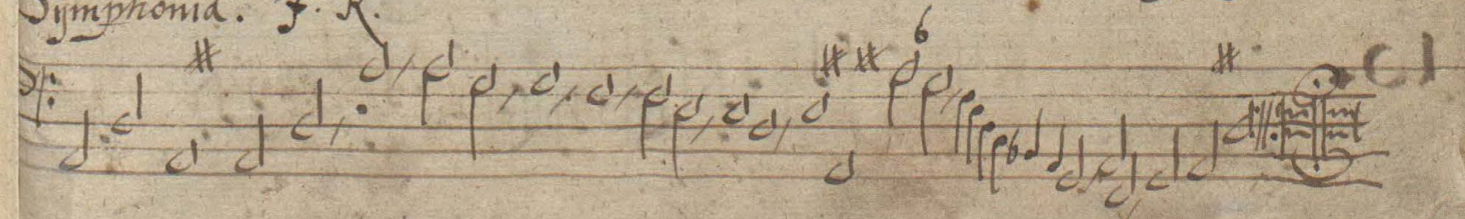 Symphonia. J. R.
6